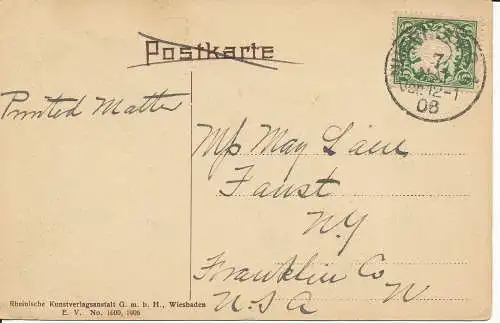 Postkarte
7
Vor. 12-1
08
Printed Matter
May
Faust
N.Y
Franklin Co
U.S.A
Rheinische Kunstverlagsanstalt G. m. b. H., Wiesbaden
E. V. No. 1600, 1906